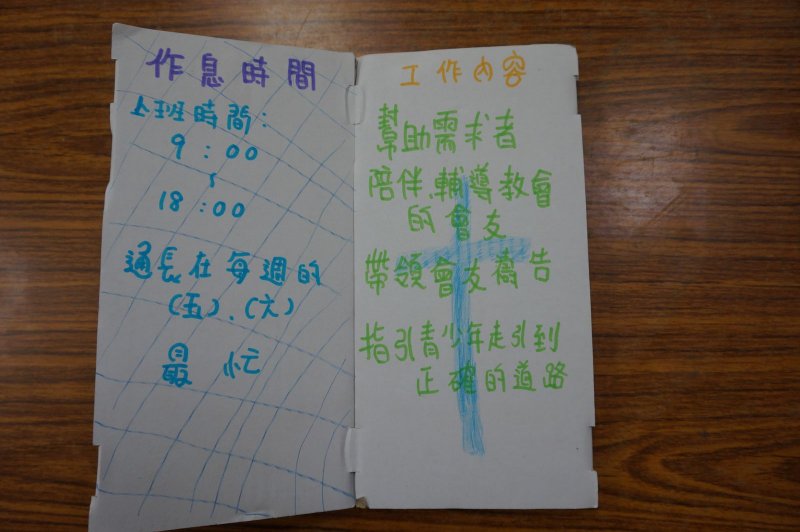 作息時間
上班時間：
9：00
～
18：00
通長在每週的
(五)、(六)
最忙
工作內容
幫助需求者
陪伴、輔導教會
的會友
帶領會友禱告
指引青少年走引到
正確的道路